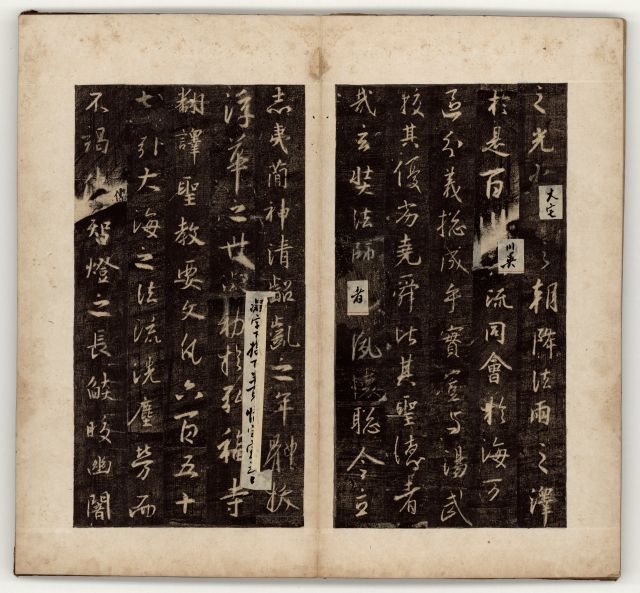 之光大宅之朝降法雨之澤
於是百川川異流同會於海万
區分義総成乎實豈与湯武
校其優劣堯舜比其聖德者
哉玄奘法師者夙懷聰令立
志夷簡神清齠齔之年體拔
浮華之世凝勅於弘福寺
凝字下
翻譯聖教要文凡六百五十
七引大海之法流洗塵勞而
不竭傳智燈之長燄皎幽闇